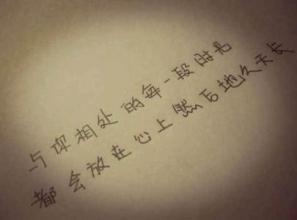 与你相处的每一段时光
都会放在心上然后地久天长